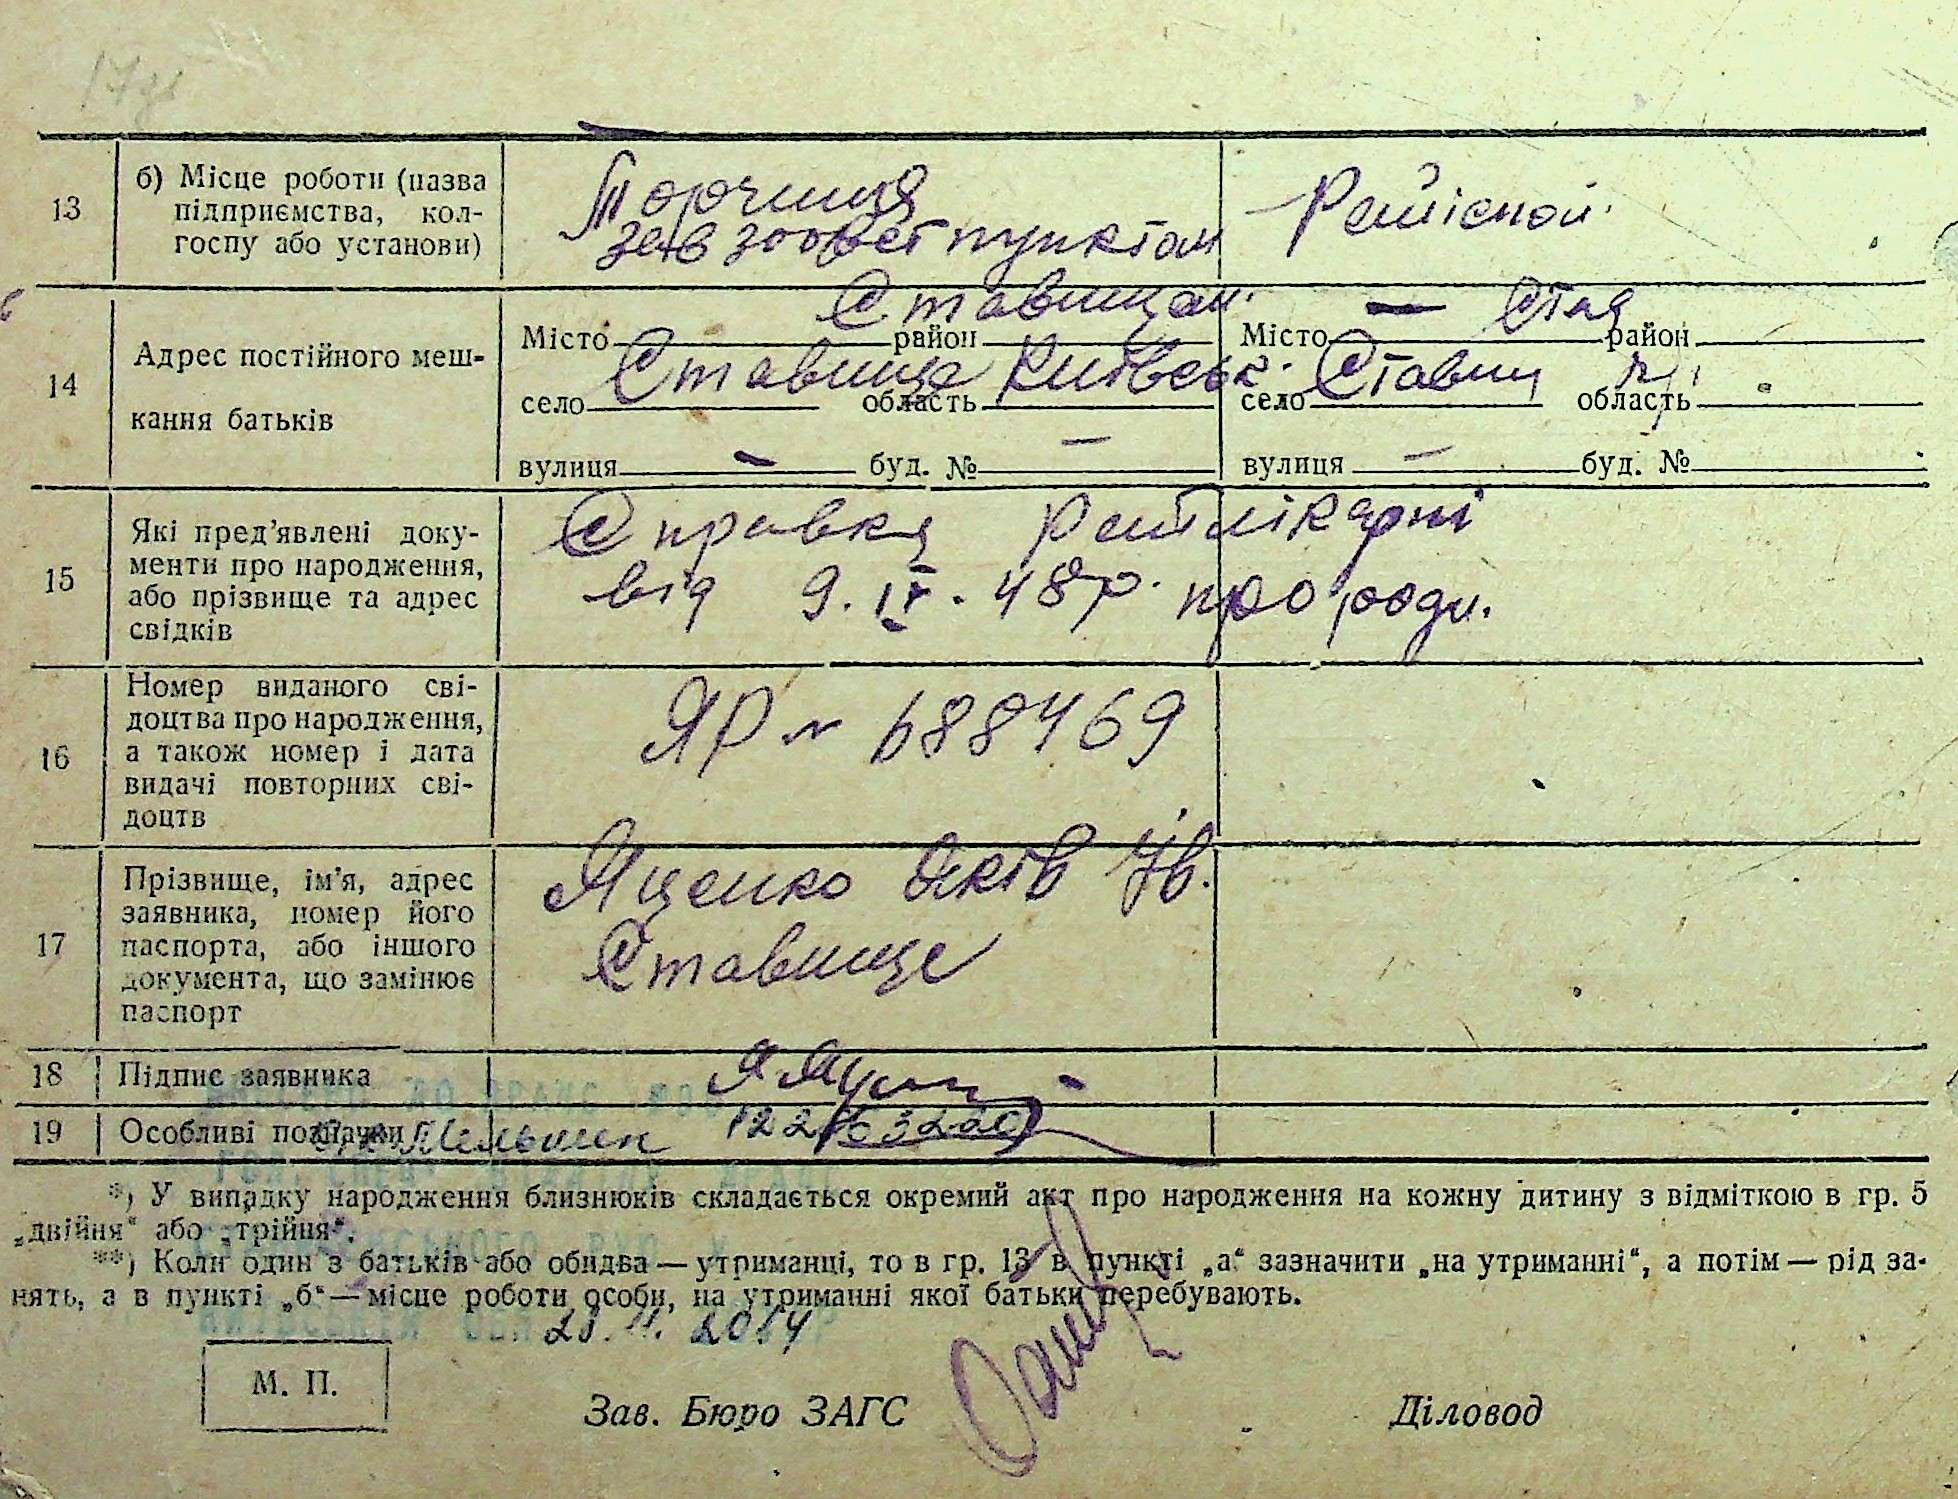 13
б) Місце роботи (назва
підприємства, кол-
госпу або установи)
Торчиця
зав зооветпунктом
14
Адрес постійного меш-
кання батьків
Ставищан.
Місто район
Ставище Київськ.
село область
вулиця — буд. № —
— Став
Місто район
Ставищ
село область
вулиця — буд. №
15
Які пред’явлені доку-
менти про народження,
або прізвище та адрес
свідків
Справка райлікарні
від 9.IV.48р. про родж.
16
Номер виданого сві-
доцтва про народження,
а також номер і дата
видачі повторних сві-
доцтв
ЯР № 688469
17
Прізвище, ім’я, адрес
заявника, номер його
паспорта, або іншого
документа, що замінює
паспорт
Яценко Яків Ів.
Ставище
18
Підпис заявника
19
Особливі позначки
*) У випадку народження близнюків складається окремий акт про народження на кожну дитину з відміткою в гр. 5
„двійня“ або „трійня“.
**) Коли один з батьків або обидва — утриманці, то в гр. 13 в пункті „а“ зазначити „на утриманні“, а потім — рід за-
нять, а в пункті „б“ — місце роботи особи, на утриманні якої батьки перебувають.
М. П.
Зав. Бюро ЗАГС
Діловод